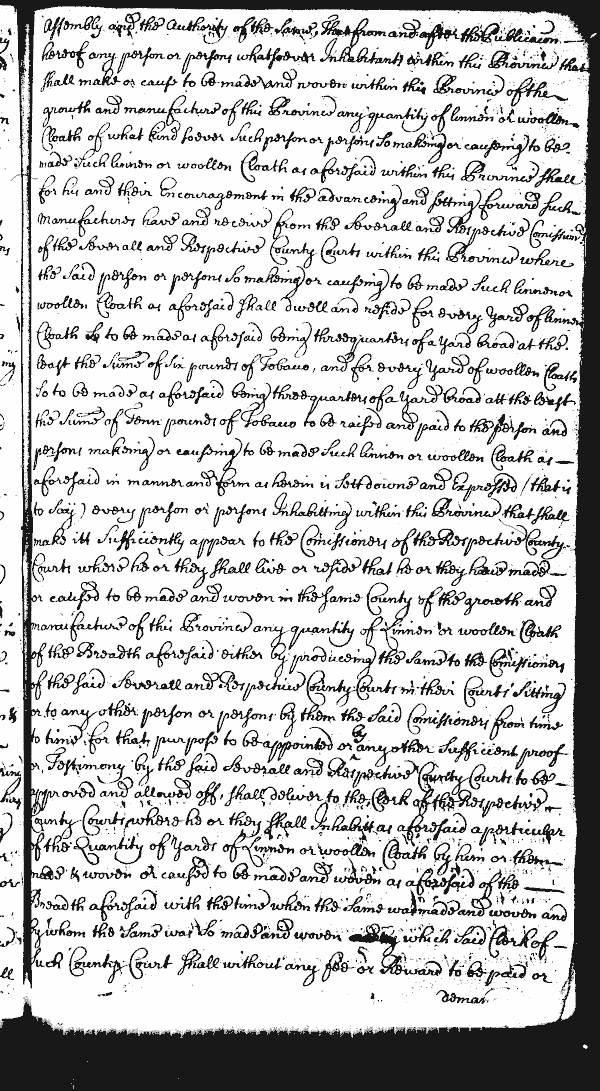 Assembly and the Authority of the Same, That from and after the Publicaion
hereof any person or persons whatsoever Inhabitants within this Province that
shall make or cause to be made and woven within this Province of the
growth and manufacture of this Province any quantity of linnen or woollen
Cloath of what kind soever Such person or persons So makeing or causeing to be
made Such linnen or woollen Cloath as aforesaid within this Province shall
for his and their Encouragement in the advanceing and setting forward such
Manufactures have and receive from the Severall and Respective Comission.rs
of the Severall and Respective County Courts within this Province where
the Said person or persons So makeing or causeing to be made Such linnen or
woollen Cloath as aforesaid Shall dwell and reside for every Yard of linnen
Cloath So to be made as aforesaid being three quarters of a Yard broad at the
least the Sume of Six pounds of Tobacco, and for every Yard of woollen Cloath
So to be made as aforesaid being three quarters of a Yard broad att the least
the Sume of Tenn pounds of Tobacco to be raised and paid to the person and
persons makeing or causeing to be made Such linnen or woollen Cloath as
aforesaid in manner and form as herein is Sett downe and Expressed (that is
to Say) every person or persons Inhabitting within this Province that shall
make itt Sufficiently appear to the Comissioners of the Respective County
Courts where he or they shall live or reside that he or they have made
or caused to be made and woven in the same County of the growth and
manufacture of this Province any quantity of Linnen or woollen Cloath
of the Breadth aforesaid either by produceing the Same to the Comissioners
of the said Severall and Respective County Courts in their Courts Sitting
or to any other person or persons by them the Said Comissioners from time
to time for that purpose to be appointed or by any other Sufficient proof
or Testimony by the said Severall and Respective County Courts to be
approved and allowed off, shall deliver to the Clerk of the Respective
County Courts where he or they shall Inhabitt as aforesaid a perticular
of the Quantity of Yards of Linnen or woollen Cloath by him or them
made & woven or caused to be made and woven as aforesaid of the
Breadth aforesaid with the time when the Same was made and woven and
by whom the Same was So made and woven which Said Clerk of
such County Court Shall without any fee or Reward to be paid or
deman